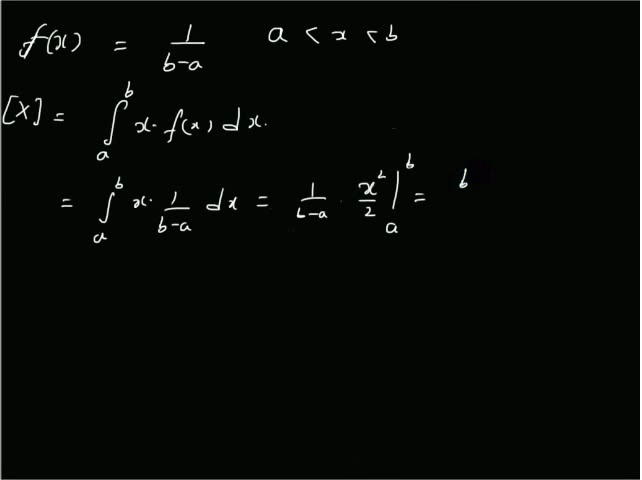 f(x) = 1/(b-a) a < x < b
[X] = ∫_a^b x · f(x) dx.
= ∫_a^b x · 1/(b-a) dx = 1/(b-a) · x²/2 |_a^b = b